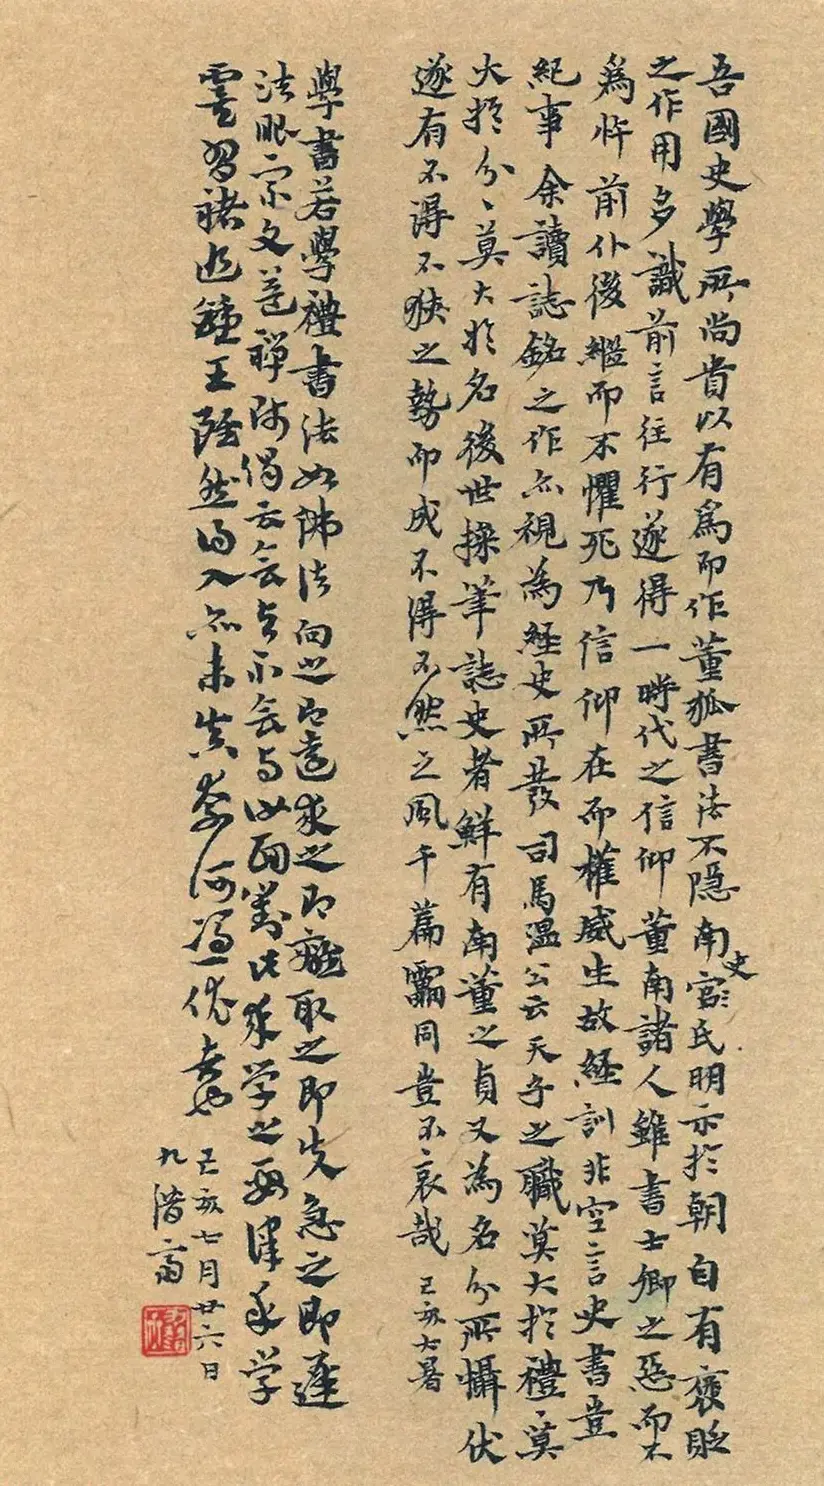 吾國史學所尚貴以有為而作董狐書法不隱南史宮氏明示於朝自有褒貶
之作用多識前言往行遂得一時代之信仰董南諸人雖書士卿之惡而不
為忤前仆後繼而不懼死乃信仰在而權威生故經訓非空言史書豈
紀事余讀誌銘之作亦視為經史所發司馬溫公云天子之職莫大於禮、莫
大於分、莫大於名後世操筆誌史者鮮有南董之貞又為名分所懾伏
遂有不得不狹之勢而成不得不然之風千篇靄同豈不哀哉 己亥大暑
學書若學禮書法如佛法向之即遠求之即離取之即失急之即遲
法眼宗文益禪師偈云會與不會與汝面對 學之要津永學
習褚追鍾王 然入亦未 奈何
己亥七月廿六日
九潛齋